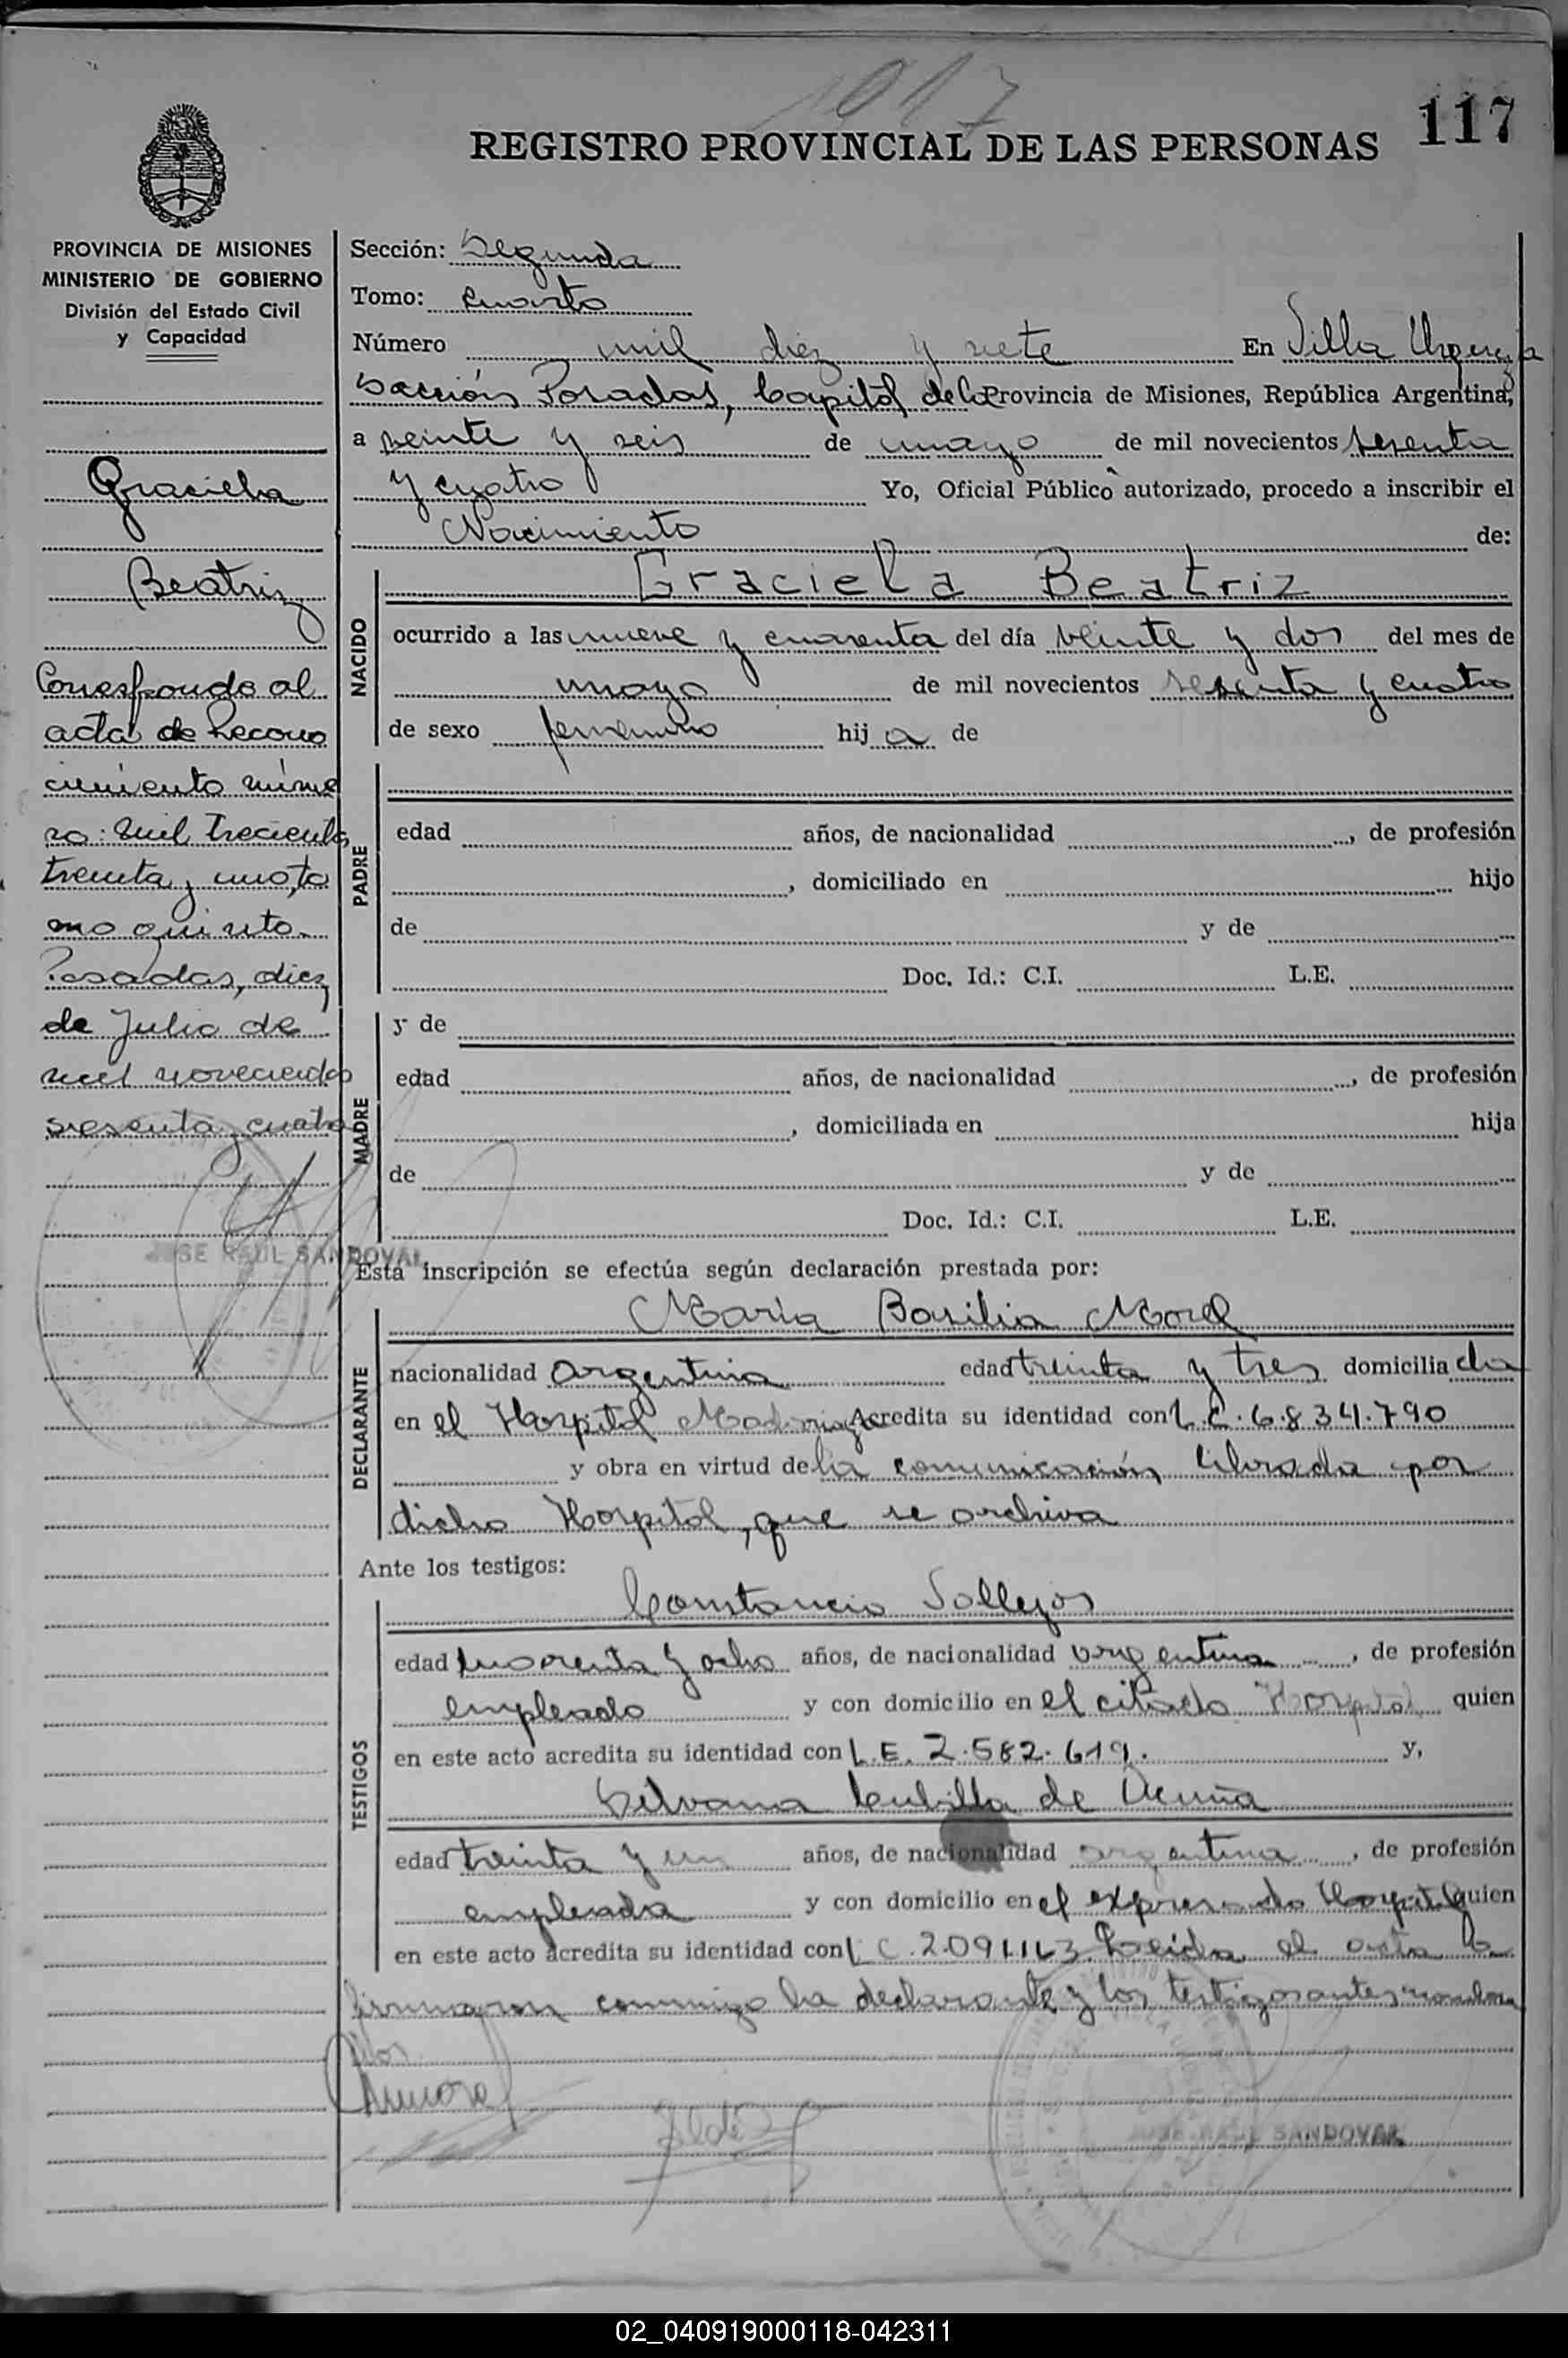 1017
117
REGISTRO PROVINCIAL DE LAS PERSONAS
PROVINCIA DE MISIONES
MINISTERIO DE GOBIERNO
División del Estado Civil
y Capacidad
Graciela
Beatriz
Corresponde al
acta de Recono
cimiento núme
ro: mil trecientos
treinta y uno, to
mo quinto.
Posadas, diez
de Julio de
mil novecientos
sesenta y cuatro
JOSE RAUL SANDOVAL
Sección: Segunda
Tomo: cuarto
Número mil diez y siete En Villa Urquiza
Sección Posadas, Capital de la Provincia de Misiones, República Argentina,
a veinte y seis de mayo de mil novecientos sesenta
y cuatro Yo, Oficial Público autorizado, procedo a inscribir el
Nacimiento de:
NACIDO
Graciela Beatriz
ocurrido a las nueve y cuarenta del día veinte y dos del mes de
mayo de mil novecientos sesenta y cuatro
de sexo femenino hij a de
PADRE
edad años, de nacionalidad , de profesión
, domiciliado en hijo
de y de
Doc. Id.: C.I. L.E.
MADRE
y de
edad años, de nacionalidad , de profesión
, domiciliada en hija
de y de
Doc. Id.: C.I. L.E.
Esta inscripción se efectúa según declaración prestada por:
DECLARANTE
María Basilia Morel
nacionalidad argentina edad treinta y tres domicilia da
en el Hospital Madariaga Acredita su identidad con L.C. 6.834.790
y obra en virtud de la comunicación librada por
dicho Hospital, que se archiva
Ante los testigos:
TESTIGOS
Constancio Vallejos
edad cuarenta y ocho años, de nacionalidad argentina , de profesión
empleado y con domicilio en el citado Hospital quien
en este acto acredita su identidad con L.E. 2.582.619. y,
Silvana Cubilla de Acuña
edad treinta y un años, de nacionalidad argentina , de profesión
empleada y con domicilio en el expresado Hospital quien
en este acto acredita su identidad con L C. 2.091.143. Leída el acta la
firmaron conmigo la declarante y los testigos antes nombra
dos.
JOSE RAUL SANDOVAL
02_040919000118-042311